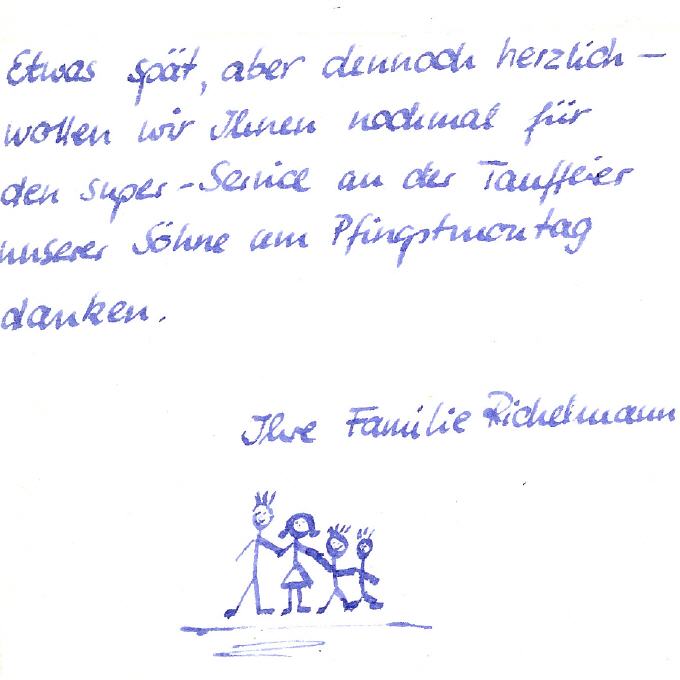 Etwas spät, aber dennoch herzlich –
wollen wir Ihnen nochmal für
den super-Service an der Tauffeier
unserer Söhne am Pfingstmontag
danken.
Ihre Familie Richelmann